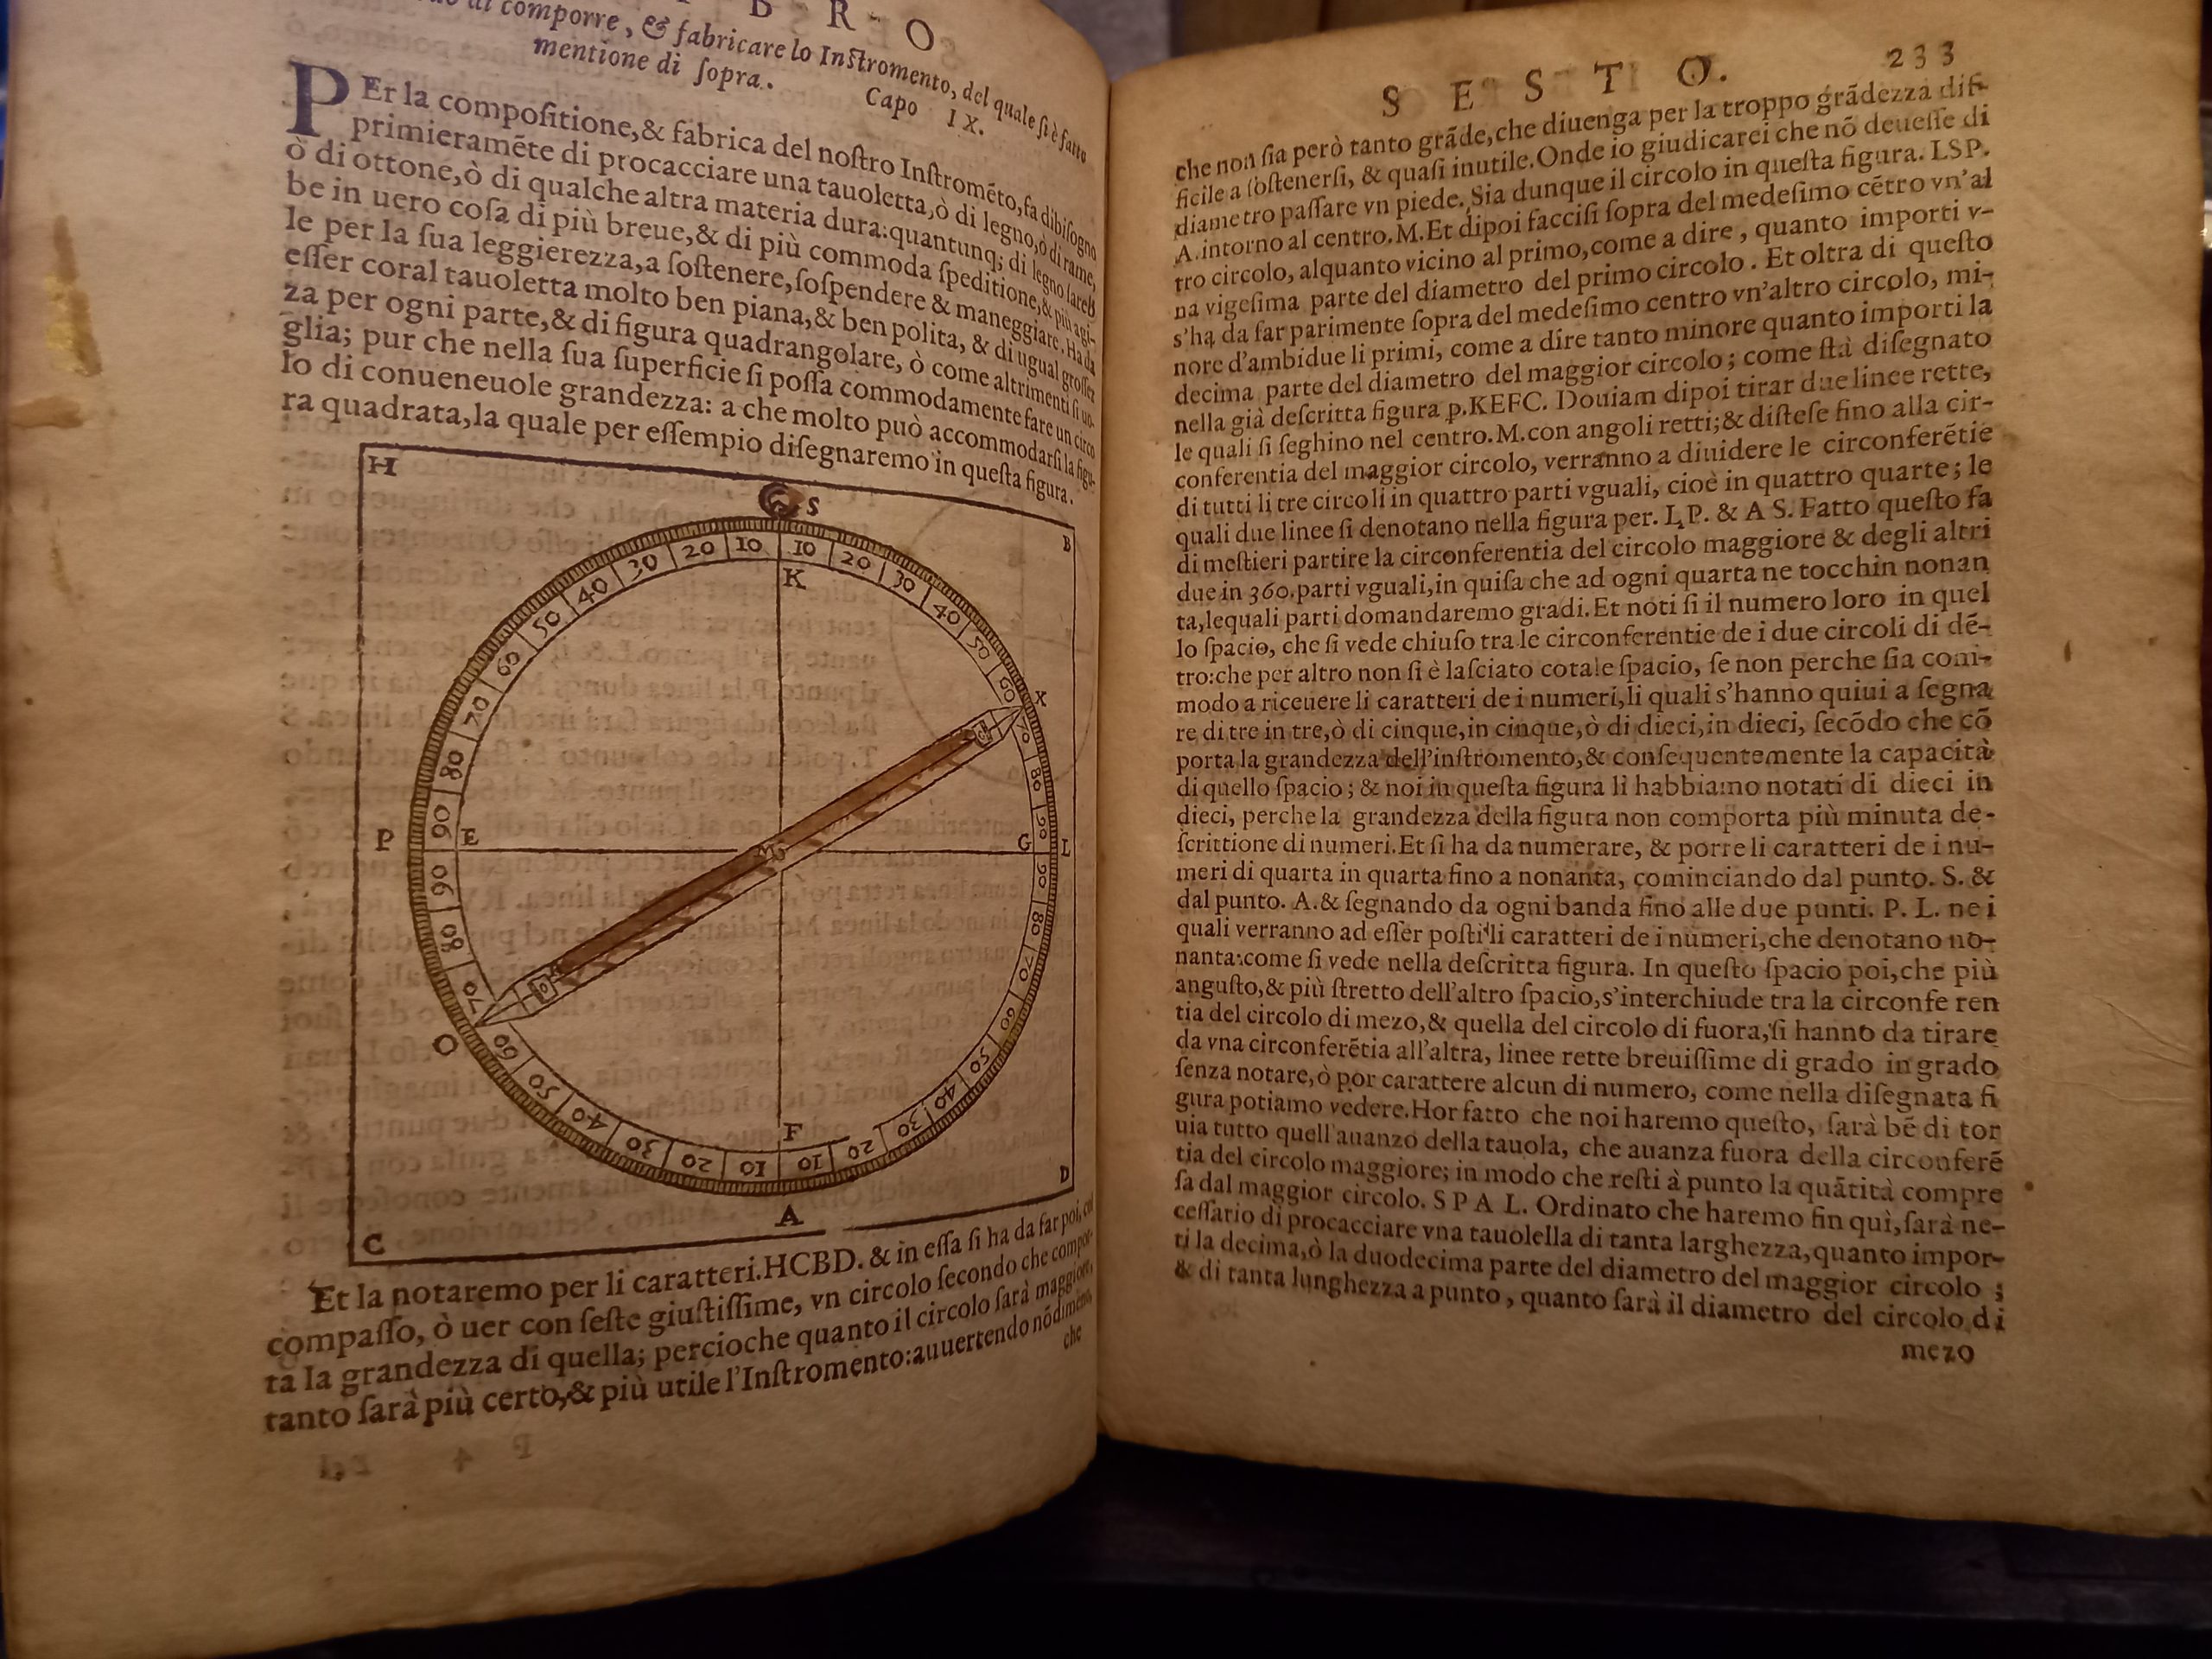 B R O
di comporre, & fabricare lo Inſtromento, del quale ſi è fatto
mentione di ſopra. Capo IX.
PEr la compoſitione,& fabrica del noſtro Inſtromẽto,fa dibiſogno
primieramẽte di procacciare una tauoletta,ò di legno,ò di rame,
ò di ottone,ò di qualche altra materia dura:quantunq; di legno ſareb
be in uero coſa di più breue,& di più commoda ſpeditione,& più agi-
le per la ſua leggierezza,a ſoſtenere,ſoſpendere & maneggiare. Ha da
eſſer coral tauoletta molto ben piana,& ben polita, & di ugual groſſez
za per ogni parte,& di figura quadrangolare, ò come altrimenti ſi uo-
glia; pur che nella ſua ſuperficie ſi poſſa commodamente fare un circo
lo di conueneuole grandezza: a che molto può accommodarſi la figu-
ra quadrata,la quale per eſſempio diſegnaremo in queſta figura.
H
S
B
10 10 20 30 40 50 60 70 80 90
90 80 70 60 50 40 30 20 10
10 20 30 40 50 60 70 80 90
90 80 70 60 50 40 30 20
K
X
P E M G L
O
F
D
A
C
Et la notaremo per li caratteri.HCBD. & in eſſa ſi ha da far poi, col
compaſſo, ò uer con ſeſte giuſtiſſime, vn circolo ſecondo che compor-
ta la grandezza di quella; percioche quanto il circolo ſarà maggiore,
tanto ſarà più certo,& più utile l'Inſtromento:auuertendo nõdimeno,
che
S E S T O. 233
che non ſia però tanto grãde,che diuenga per la troppo grãdezza dif-
ficile a ſoſtenerſi, & quaſi inutile.Onde io giudicarei che nõ deueſſe di
diametro paſſare vn piede. Sia dunque il circolo in queſta figura. LSP.
A.intorno al centro.M.Et dipoi facciſi ſopra del medeſimo cẽtro vn'al
tro circolo, alquanto vicino al primo,come a dire, quanto importi v-
na vigeſima parte del diametro del primo circolo. Et oltra di queſto
s'ha da far parimente ſopra del medeſimo centro vn'altro circolo, mi-
nore d'ambidue li primi, come a dire tanto minore quanto importi la
decima parte del diametro del maggior circolo; come ſtà diſegnato
nella già deſcritta figura ꝑ.KEFC. Douiam dipoi tirar due linee rette,
le quali ſi ſeghino nel centro.M.con angoli retti;& diſteſe fino alla cir-
conferentia del maggior circolo, verranno a diuidere le circonferẽtie
di tutti li tre circoli in quattro parti vguali, cioè in quattro quarte; le
quali due linee ſi denotano nella figura per. L P. & A S. Fatto queſto fa
di meſtieri partire la circonferentia del circolo maggiore & degli altri
due in 360.parti vguali,in quiſa che ad ogni quarta ne tocchin nonan
ta,lequali parti domandaremo gradi.Et noti ſi il numero loro in quel
lo ſpacio, che ſi vede chiuſo tra le circonferentie de i due circoli di dẽ-
tro:che per altro non ſi è laſciato cotale ſpacio, ſe non perche ſia com-
modo a riceuere li caratteri de i numeri,li quali s'hanno quiui a ſegna
re di tre in tre,ò di cinque,in cinque,ò di dieci,in dieci, ſecõdo che cõ
porta la grandezza dell'inſtromento,& conſequentemente la capacità
di quello ſpacio; & noi in queſta figura li habbiamo notati di dieci in
dieci, perche la grandezza della figura non comporta più minuta de-
ſcrittione di numeri.Et ſi ha da numerare, & porre li caratteri de i nu-
meri di quarta in quarta fino a nonanta, cominciando dal punto. S. &
dal punto. A.& ſegnando da ogni banda fino alle due punti. P. L. ne i
quali verranno ad eſſer poſti li caratteri de i numeri,che denotano no-
nanta:come ſi vede nella deſcritta figura. In queſto ſpacio poi,che più
anguſto,& più ſtretto dell'altro ſpacio,s'interchiude tra la circonfe ren
tia del circolo di mezo,& quella del circolo di fuora,ſi hanno da tirare
da vna circonferẽtia all'altra, linee rette breuiſſime di grado in grado
ſenza notare,ò por carattere alcun di numero, come nella diſegnata fi
gura potiamo vedere.Hor fatto che noi haremo queſto, ſarà bẽ di tor
uia tutto quell'auanzo della tauola, che auanza fuora della circonferẽ
tia del circolo maggiore; in modo che reſti à punto la quãtità compre
ſa dal maggior circolo. S P A L. Ordinato che haremo fin quì,ſarà ne-
ceſſario di procacciare vna tauolella di tanta larghezza,quanto impor-
ti la decima,ò la duodecima parte del diametro del maggior circolo ;
& di tanta lunghezza a punto, quanto ſarà il diametro del circolo di
mezo